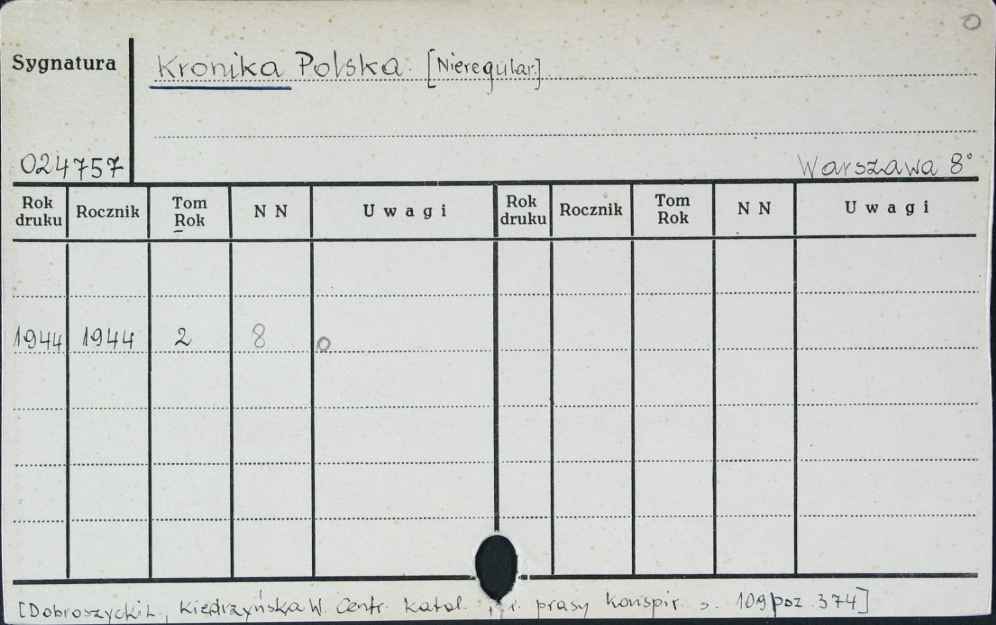 o
Sygnatura
Kronika Polska. [Nieregular.]
024757
Warszawa 8°
Rok druku Rocznik Tom Rok NN Uwagi Rok druku Rocznik Tom Rok NN Uwagi
1944 1944 2 8 o
[Dobroszycki L, Kiedrzyńska W. Centr. katal. prasy konspir. s. 109 poz. 374]